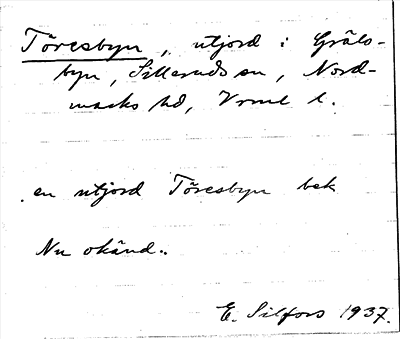 Töresbyn, utjord i Gräls-
byn, Sillerud sn, Nord-
marks hd, Vrml l.
en utjord Töresbyn bek
Nu okänd.
E. Silfors 1937.